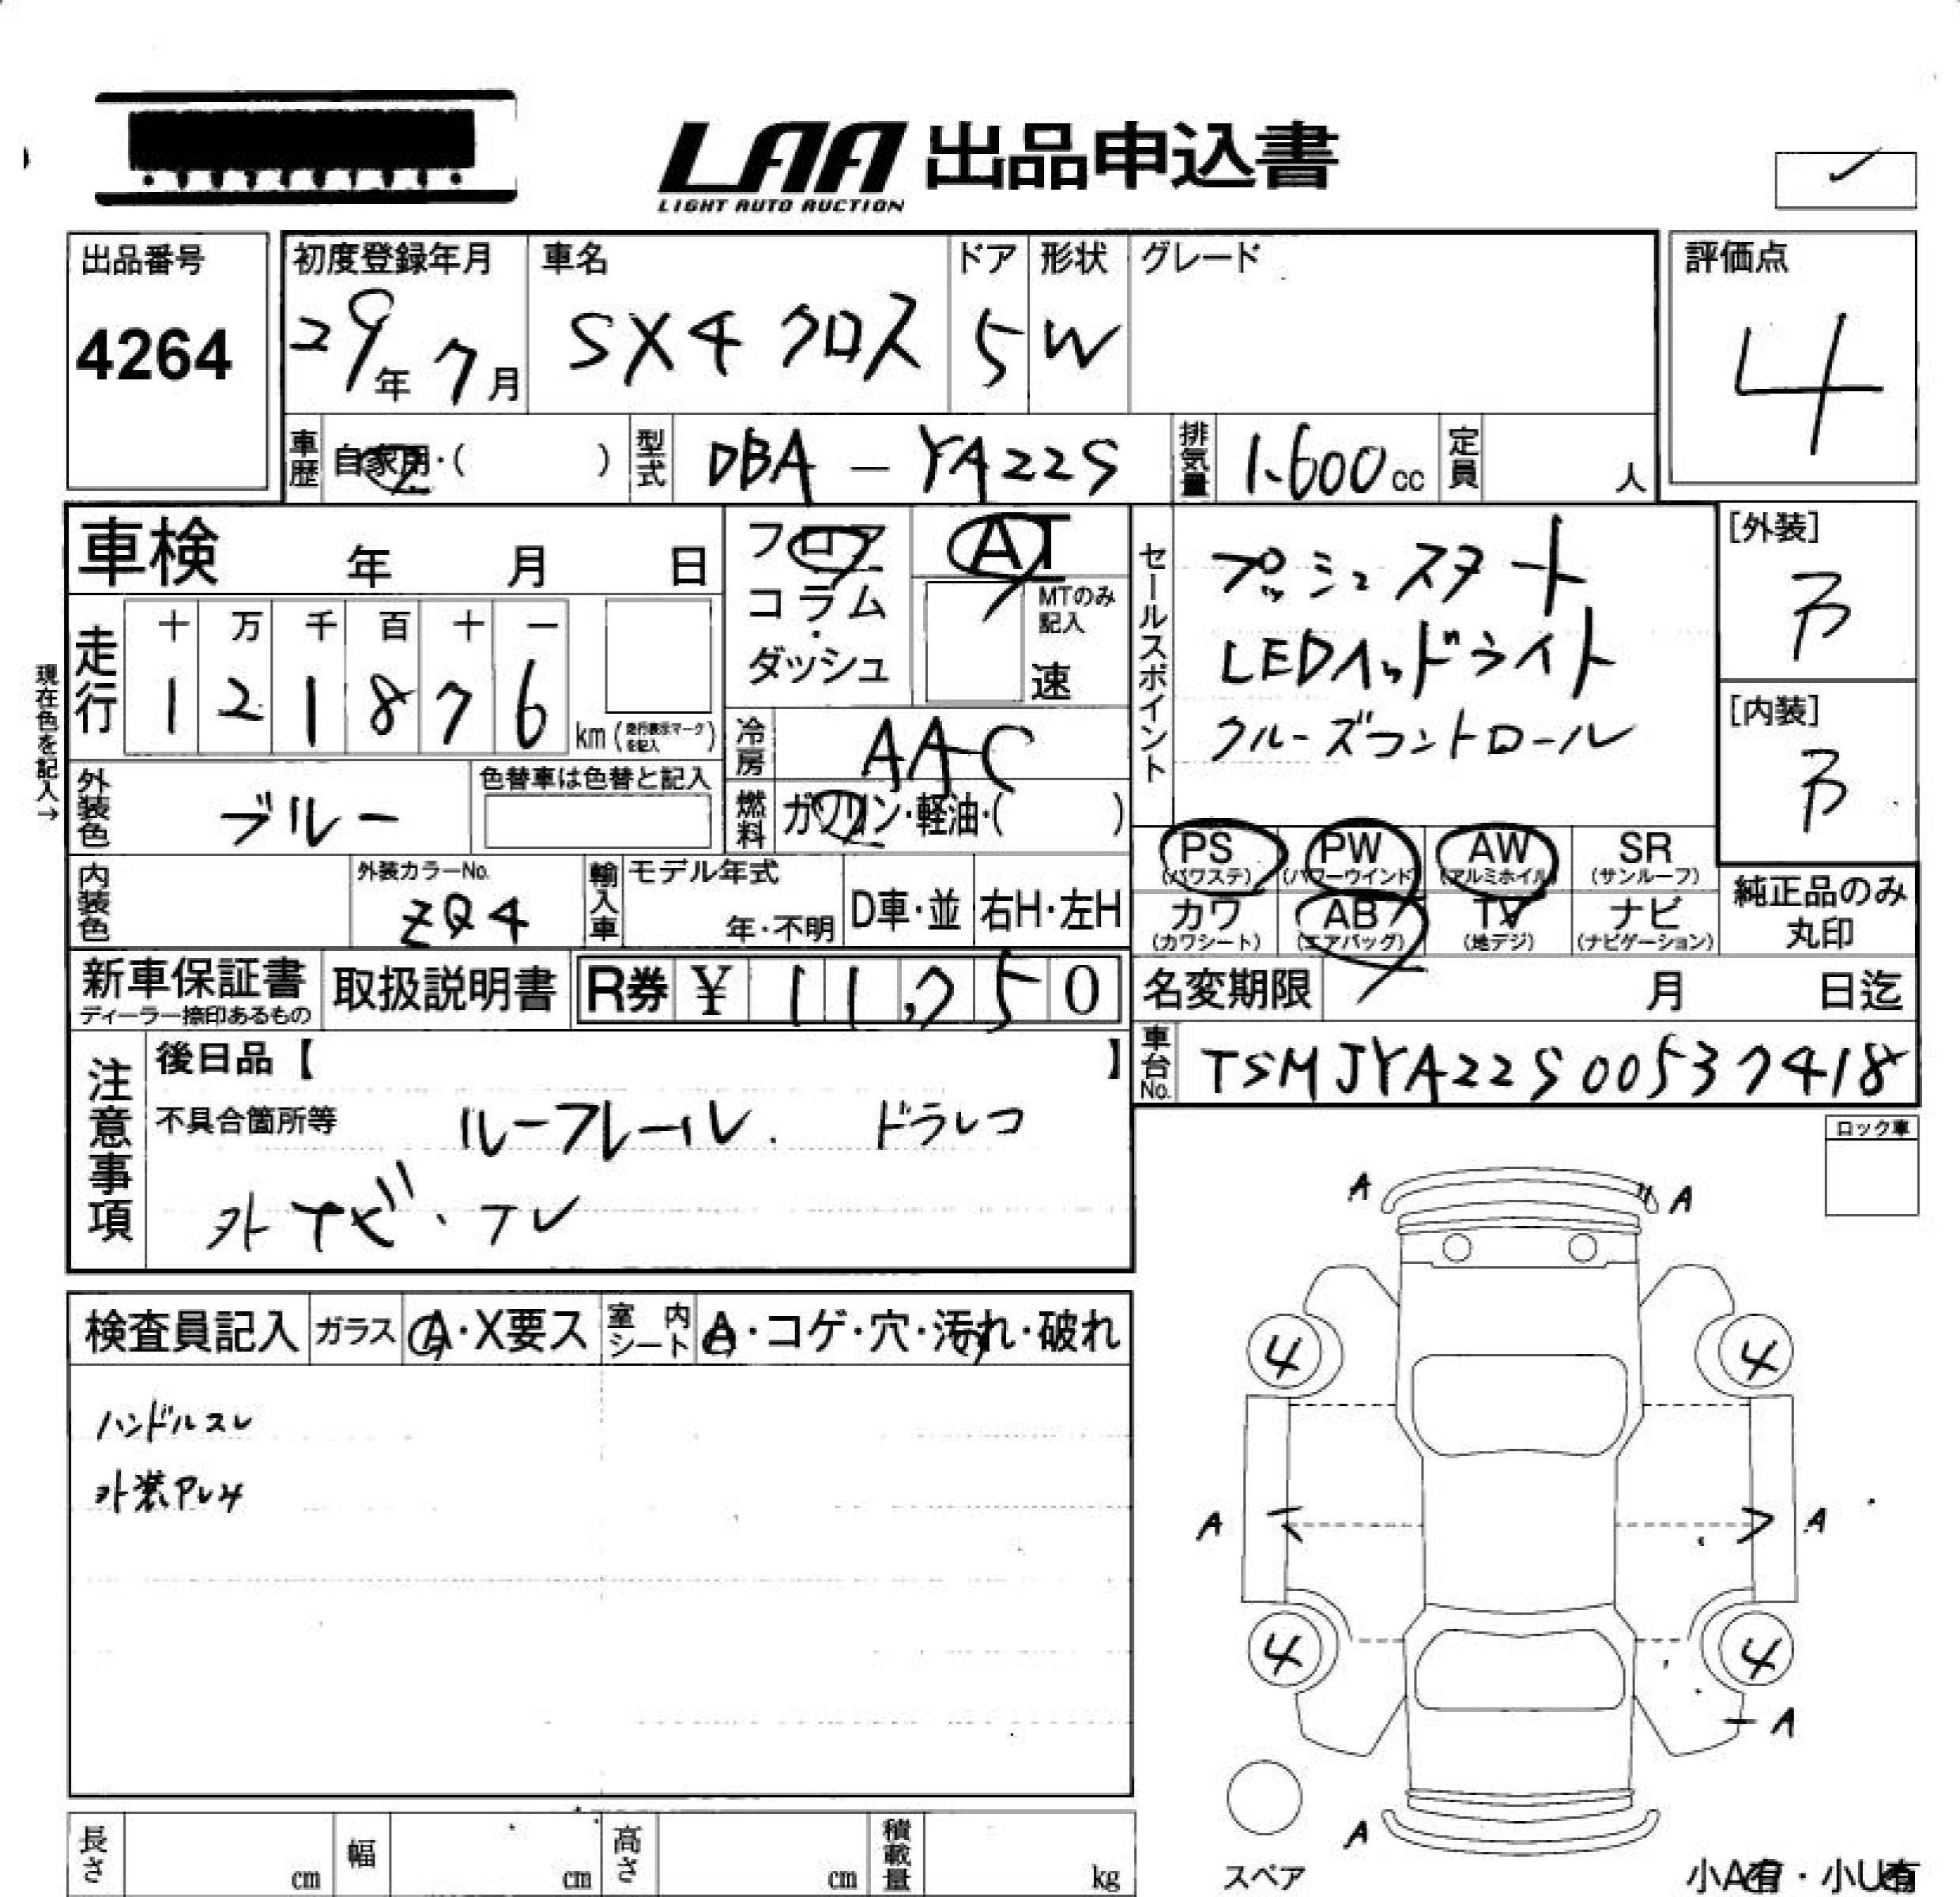 LAA 出品申込書
LIGHT AUTO AUCTION
出品番号
4264
初度登録年月
29年 7月
車名
SX4 クロス
ドア
5
形状
W
グレード
評価点
4
車歴
自家用・( )
型式
DBA - YA22S
排気量
1.600cc
定員
人
車検 年 月 日
フロア
コラム
・
ダッシュ
AT
MTのみ
記入
速
セールスポイント
プッシュスタート
LEDヘッドライト
クルーズコントロール
[外装]
B
[内装]
B
現在色を記入→
走行
十 万 千 百 十 一
1 2 1 8 7 6
km (走行表示マークを記入)
冷房
AAC
外装色
ブルー
色替車は色替と記入
燃料
ガソリン・軽油・( )
PS
(パワステ)
PW
(パワーウインド)
AW
(アルミホイル)
SR
(サンルーフ)
カワ
(カワシート)
AB
(エアバッグ)
TV
(地デジ)
ナビ
(ナビゲーション)
純正品のみ
丸印
内装色
外装カラーNo.
ZQ4
輸入車
モデル年式
年・不明
D車・並
右H・左H
新車保証書
ディーラー捺印あるもの
取扱説明書
R券 ¥ 11,250
名変期限 月 日迄
車台No.
TSMJYA22S00537418
注意事項
後日品【 】
不具合箇所等
ルーフレール. ドラレコ
外ナビ、テレ
ロック車
検査員記入
ガラス
A・X要ス
室内
シート
A・コゲ・穴・汚れ・破れ
ハンドルスレ
外装アレみ
A A
4 4
A A
4 4
A
A
スペア
小A有・小U有
長さ cm
幅 cm
高さ cm
積載量 kg